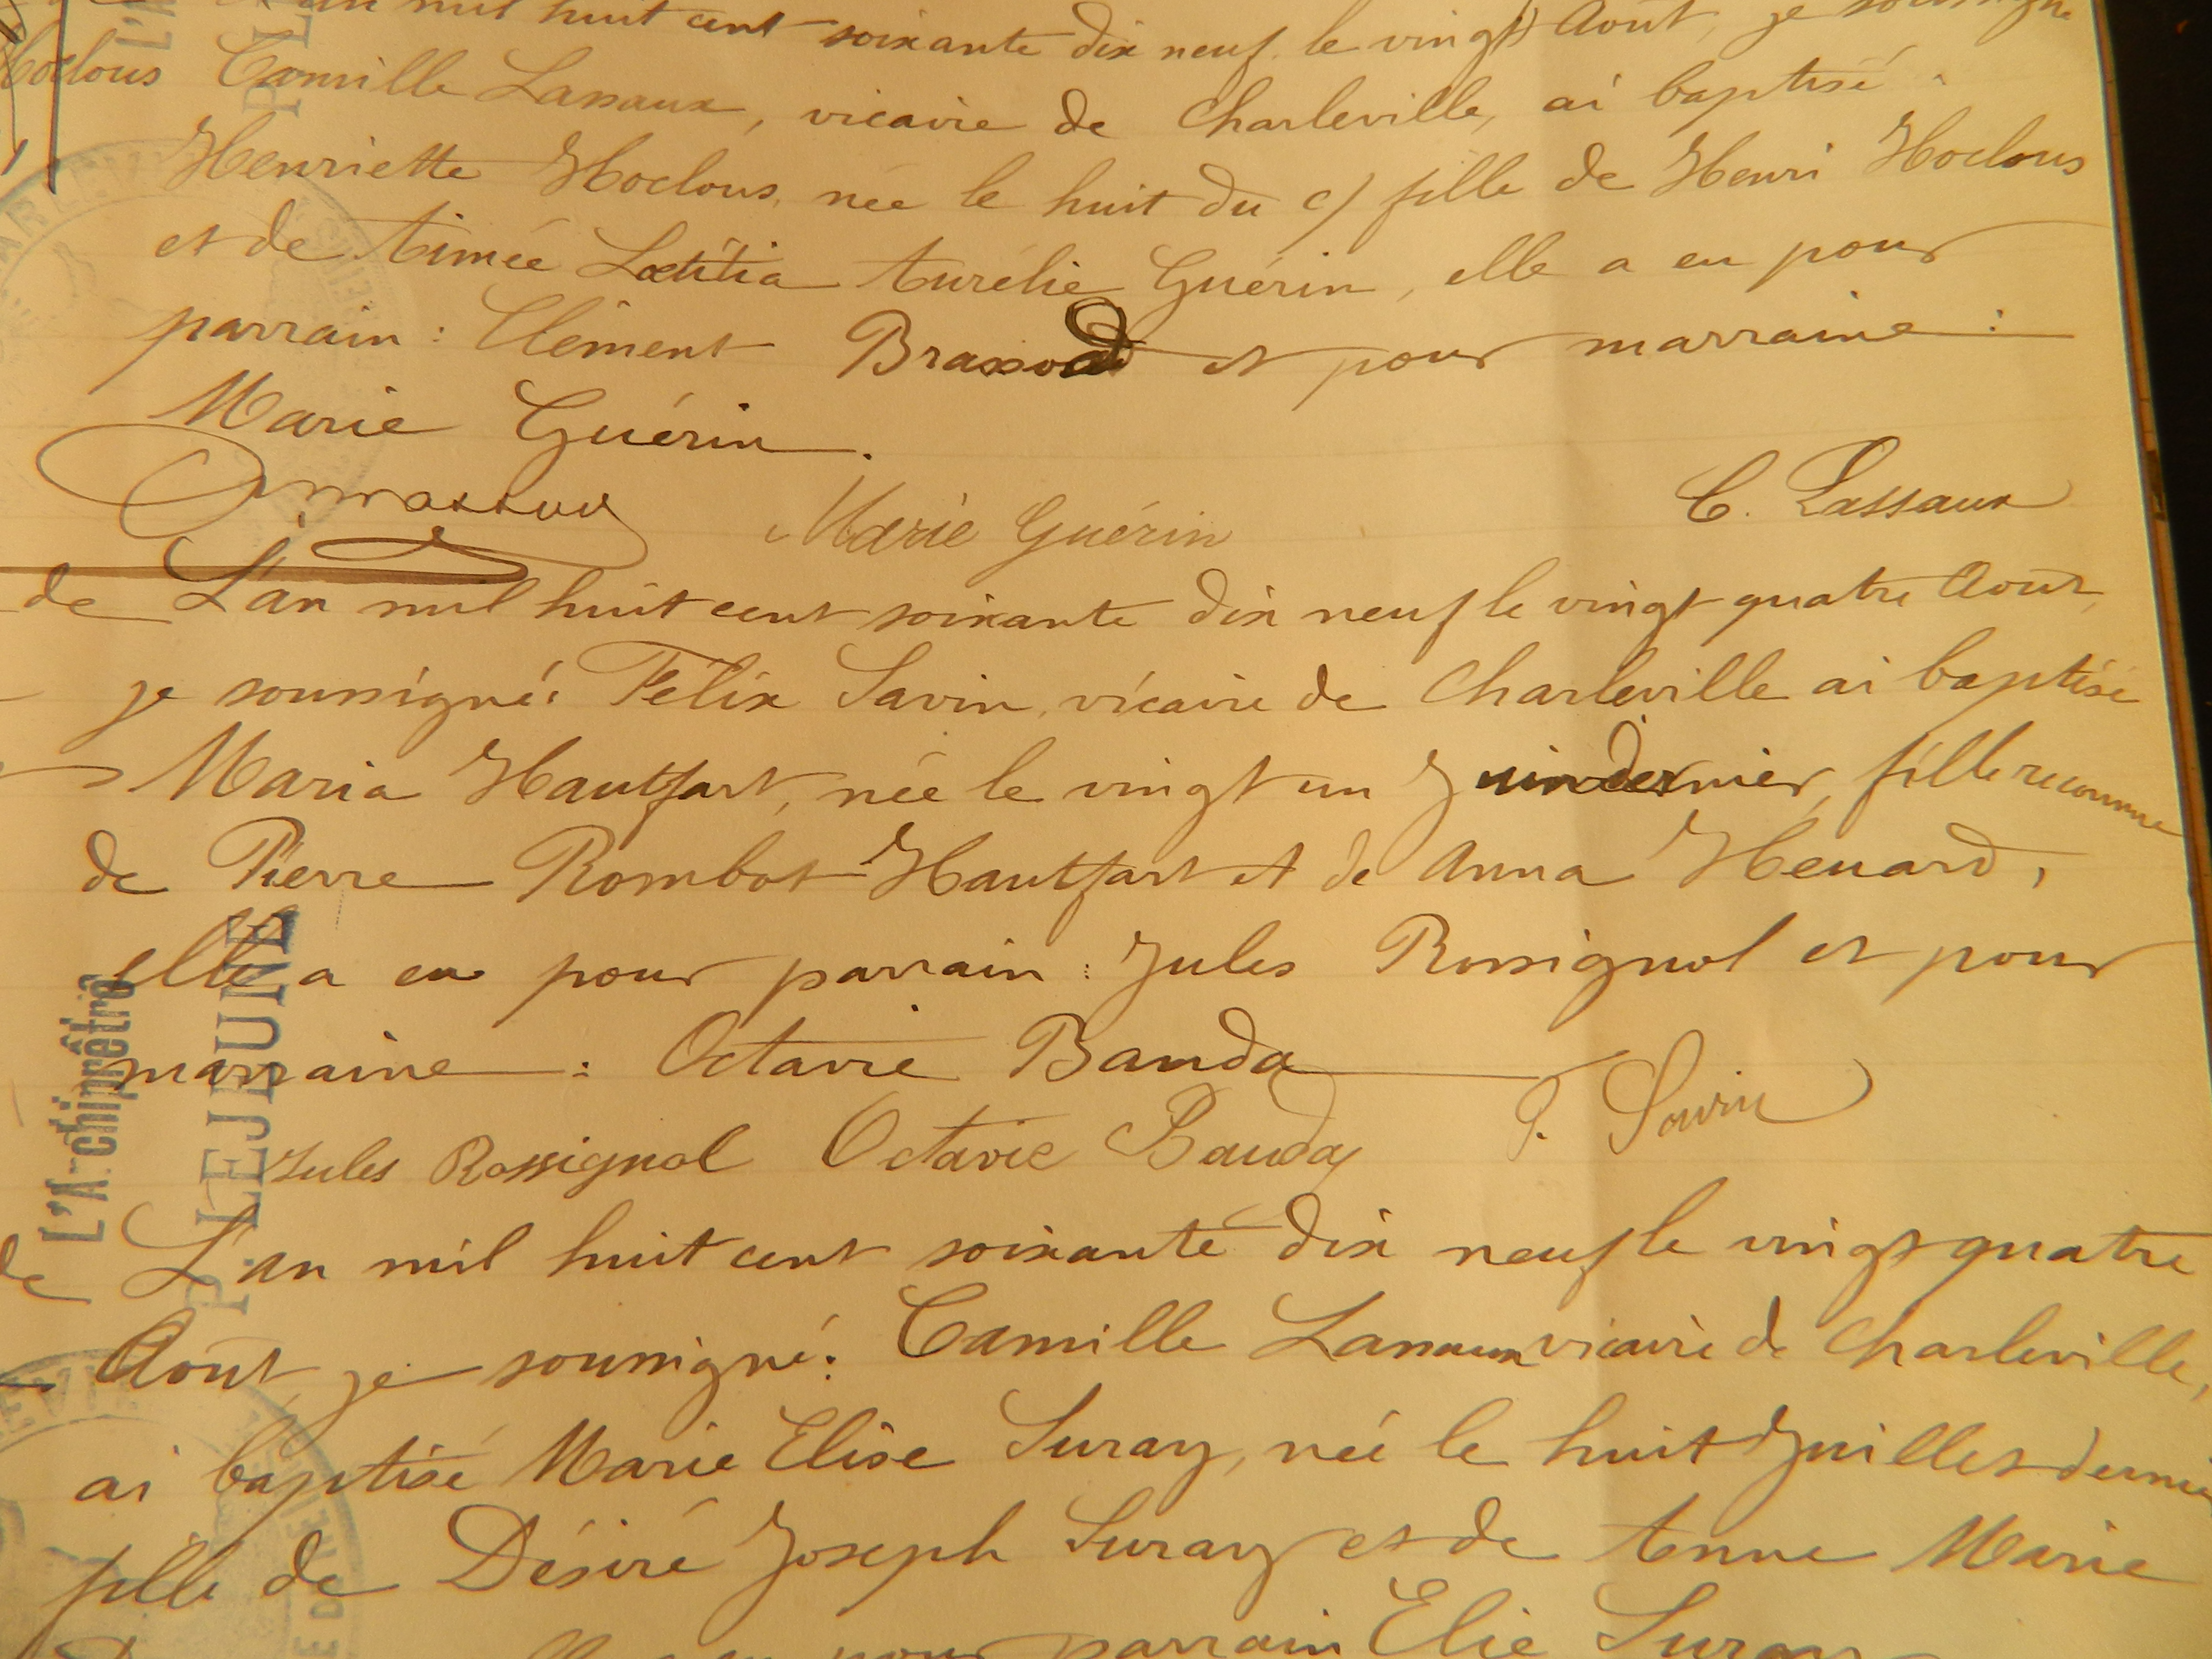 L'an mil huit cent soixante dix neuf le vingt Août, je soussigné
Hoclous Camille Lassaux, vicaire de Charleville, ai baptisé
Henriette Hoclous, née le huit du c/ fille de Henri Hoclous
et de Aimée Lætitia Aurélie Guérin, elle a eu pour
parrain : Clément et pour marraine :
Marie Guérin.
Marie Guérin C. Lassaux
de L'an mil huit cent soixante dix neuf le vingt quatre Août,
je soussigné: Félix Savin, vicaire de Charleville ai baptisé
Maria Hautfart, née le vingt un Juin dernier, fille reconnue
de Pierre Rombot Hautfart et de Anna Henard,
elle a eu pour parrain : Jules Rossignol et pour
marraine : Octavie Bauda
Jules Rossignol Octavie Bauda Savin
de L'an mil huit cent soixante dix neuf le vingt quatre
Août, je soussigné: Camille Lassaux vicaire de Charleville,
ai baptisé Marie Elise Suray, née le huit Juillet dernier
fille de Désiré Joseph Suray et de Anne Marie
pour parrain Elie Suray
L'Archiprêtre
P. LEJEUNE